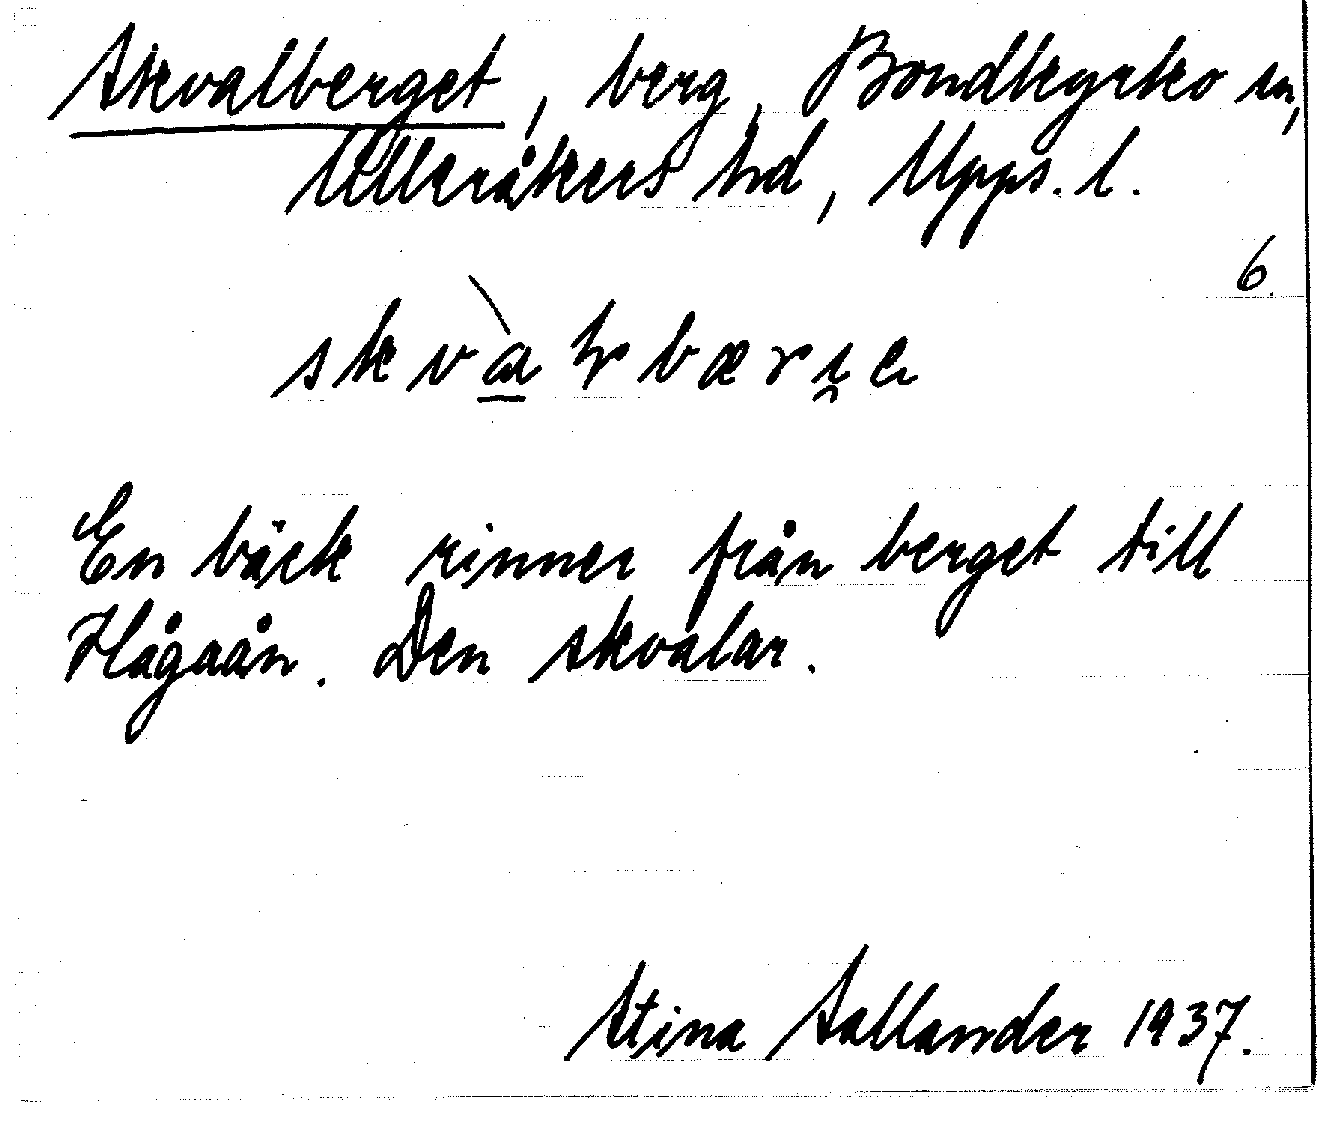 Skvalberget, berg, Bondkyrko sn,
Ulleråkers hd, Upps. l.
6.
En bäck rinner från berget till
Hågaån. Den skvalar.
Stina Sallander 1937.